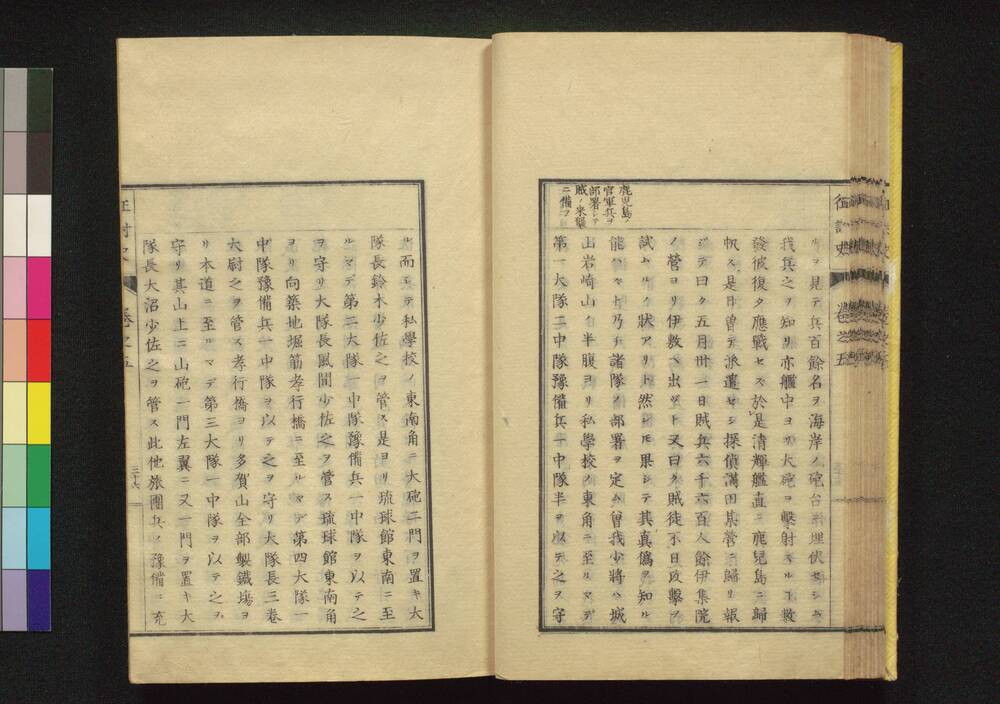 鹿児島ノ
官軍兵ヲ
部署シテ
賊ノ来襲
ニ備フ
ルヲ見テ兵百餘名ヲ海岸ノ砲台ニ埋伏セシム
我兵之ヲ知リ亦艦中ヨリ大砲ヲ撃射スル数
發彼復タ應戦セス於是清輝艦直ニ鹿児島ニ歸
帆ス是日曽テ派遣セシ探偵満田某營ニ歸リ報
シテ曰ク五月卅一日賊兵六千六百人餘伊集院
ノ營ヨリ伊敷ヘ出ツト又曰ク賊徒不日攻撃ヲ
試ムルノ状アリト然レモ果シテ其真偽ヲ知ル
能ハス乃チ諸隊ノ部署ヲ定ム曽我少將ハ城
山岩崎山ノ半腹ヨリ私學校ノ東角ニ至ルマデ
第一大隊二中隊豫備兵一中隊半ヲ以テ之ヲ守
征討史
巻之五
ル而シテ私學校ノ東南角ニ大砲二門ヲ置キ大
隊長鈴木少佐之ヲ管ス是ヨリ琉球館東南ニ至
ルマデ第二大隊一中隊豫備兵一中隊ヲ以テ之
ヲ守リ大隊長風間少佐之ヲ管ス琉球館東南角
ヨリ向築地堀筋孝行橋ニ至ルマデ第四大隊一
中隊豫備兵一中隊ヲ以テ之ヲ守リ大隊長三巻
大尉之ヲ管ス孝行橋ヨリ多賀山全部製鐵場ヨ
リ本道ニ至ルマデ第三大隊一中隊ヲ以テ之ヲ
守リ其山上ニ山砲一門左翼ニ又一門ヲ置キ大
隊長大沼少佐之ヲ管ス此他旅團兵ノ豫備ニ充
征討史
巻之五
三十六